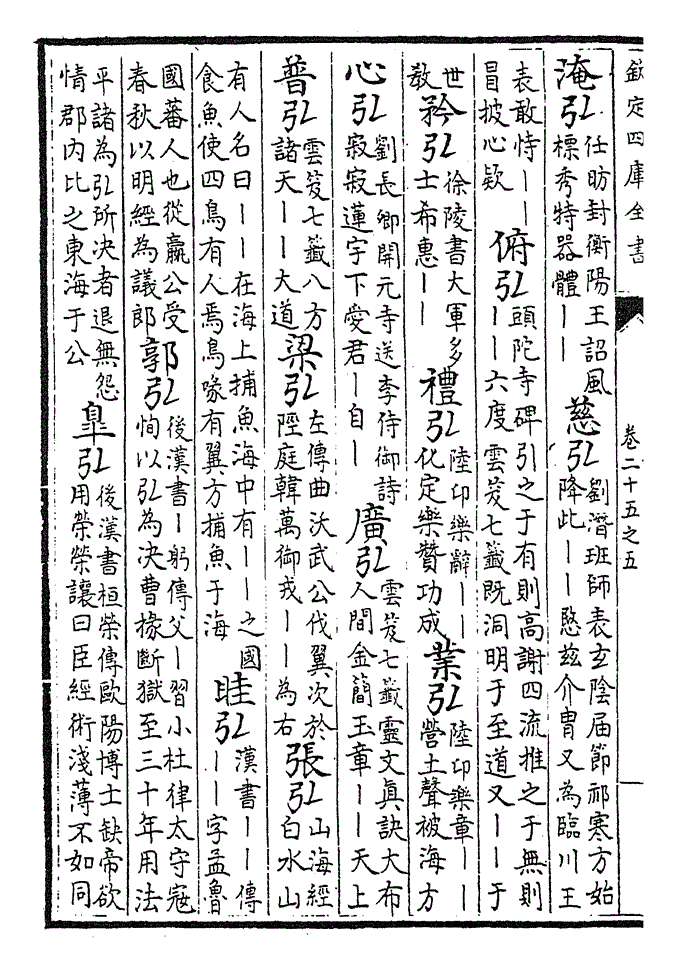 欽定四庫全書 卷二十五之五
淹弘 任昉封衡陽王詔風標秀特器體丨丨 慈弘 劉潛班師表玄陰届節祁寒方始降此丨丨愍茲介胄又為臨川王
表敢恃丨丨冒披心欵 俯弘 頭陀寺碑引之于有則高謝四流推之于無則丨丨六度雲笈七籖既洞明于至道又丨丨于
世教 矜弘 徐陵書大軍多士希惠丨丨 禮弘 陸卬樂辭丨丨化定樂贊功成 業弘 陸卬樂章丨丨營土聲被海方
心弘 劉長卿開元寺送李侍御詩寂寂蓮宇下愛君丨自丨 廣弘 雲笈七籖靈文真訣大布人間金簡玉章丨丨天上
普弘 雲笈七籖八方諸天丨丨大道 梁弘 左傳曲沃武公伐翼次於陘庭韓萬御戎丨丨為右 張弘 山海經白水山
有人名曰丨丨在海上捕魚海中有丨丨之國食魚使四鳥有人焉鳥喙有翼方捕魚于海 眭弘 漢書丨丨傳丨丨字孟魯
國蕃人也從嬴公受春秋以明經為議郎 郭弘 後漢書丨躬傳父丨習小杜律太守宼恂以弘為决曹掾斷獄至三十年用法
平諸為弘所决者退無怨情郡内比之東海于公 皐弘 後漢書桓榮傳歐陽博士缺帝欲用榮榮讓曰臣經術淺薄不如同